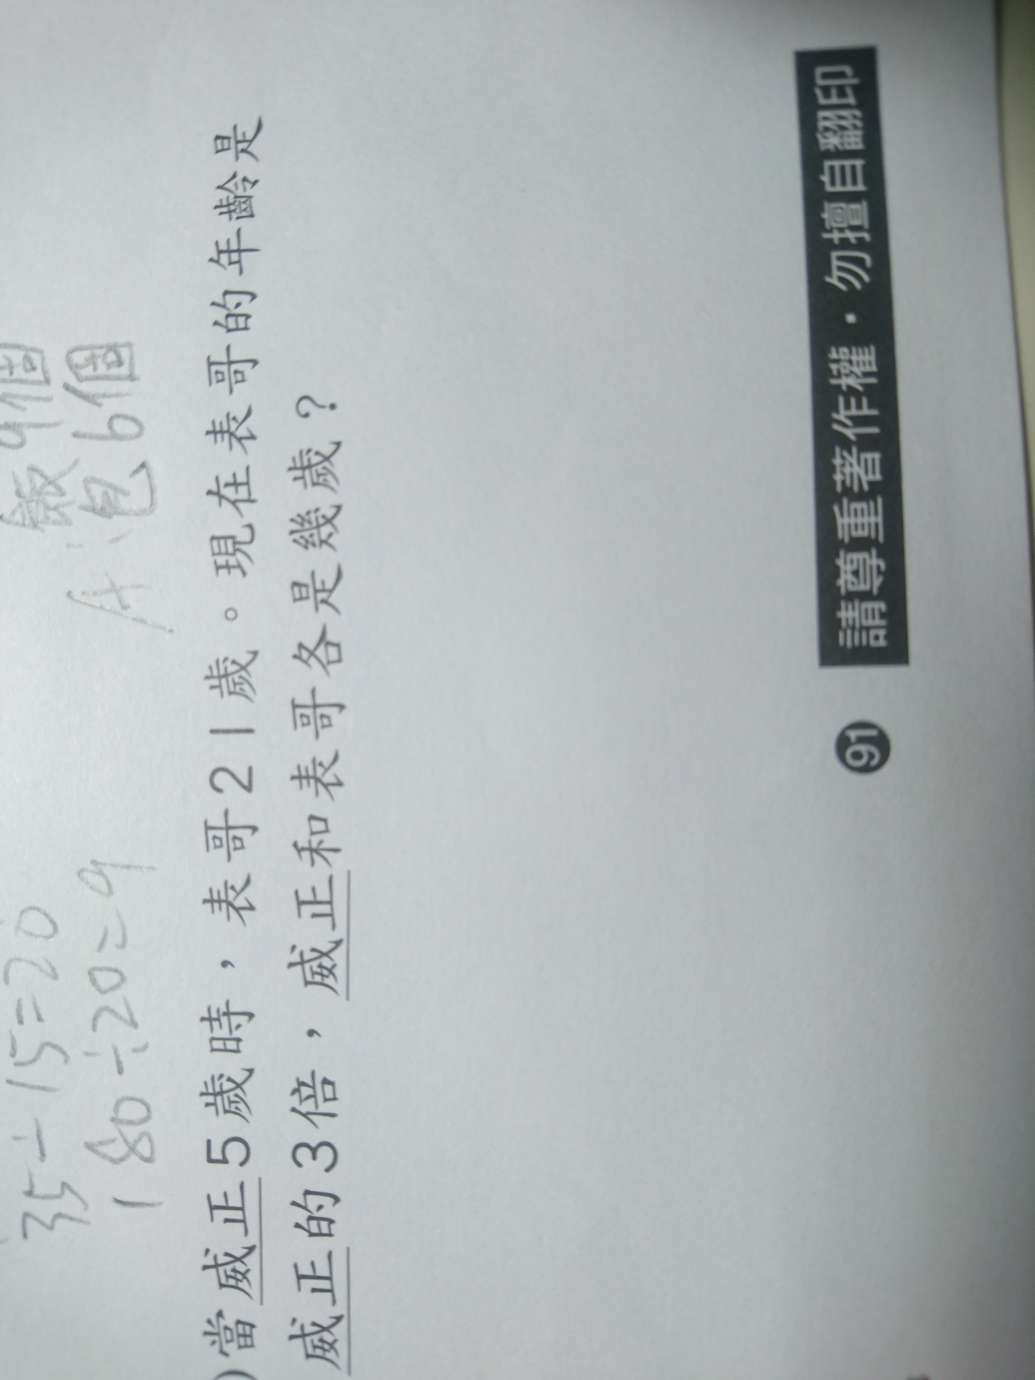 35-15=20
180÷20=9
飯9個
A:包6個
當威正5歲時，表哥21歲。現在表哥的年齡是
威正的3倍，威正和表哥各是幾歲？
91 請尊重著作權·勿擅自翻印